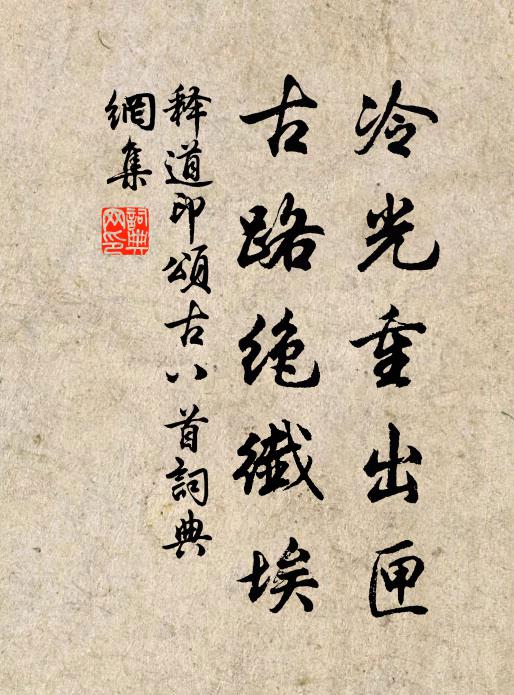 冷光重出匣
古路绝纖埃
释道印頌古八首詞典
網集
詞典網印